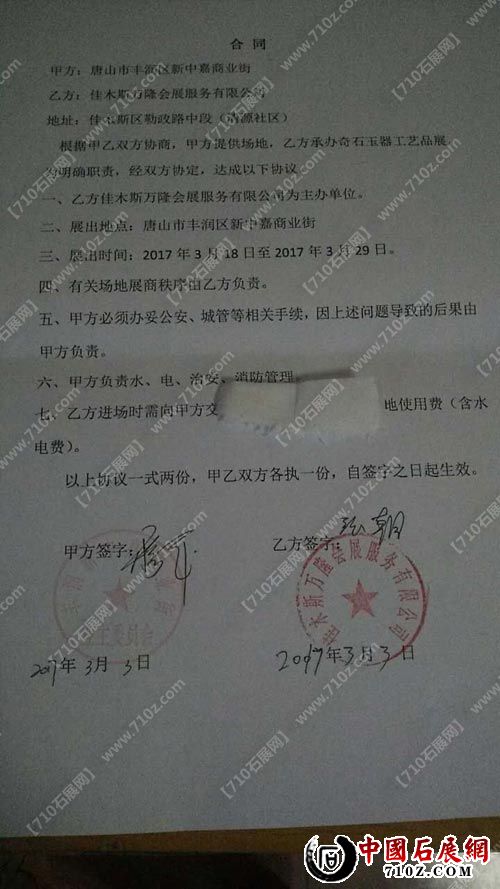 合 同
甲方：唐山市丰润区新中嘉商业街
乙方：佳木斯万隆会展服务有限公司
地址：佳木斯区勤政路中段（清源社区）
根据甲乙双方协商，甲方提供场地，乙方承办奇石玉器工艺品展
为明确职责，经双方协定，达成以下协议
一、乙方佳木斯万隆会展服务有限公司为主办单位。
二、展出地点：唐山市丰润区新中嘉商业街
三、展出时间：2017年3月18日至2017年3月29日。
四、有关场地展商秩序由乙方负责。
五、甲方必须办妥公安、城管等相关手续，因上述问题导致的后果由
甲方负责。
六、甲方负责水、电、治安、消防管理
七、乙方进场时需向甲方交 地使用费（含水
电费）。
以上协议一式两份，甲乙双方各执一份，自签字之日起生效。
甲方签字： 乙方签字：
佳木斯万隆会展服务有限公司
2017年3月3日 2017年3月3日
【710石展网】www.710z.com
中國石展網
710Z.COM